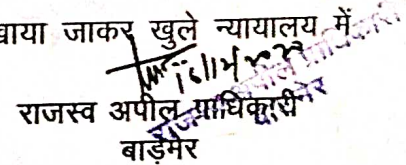 वाया जाकर खुले न्यायालय में
राजस्व अपील प्राधिकारी
बाड़मेर